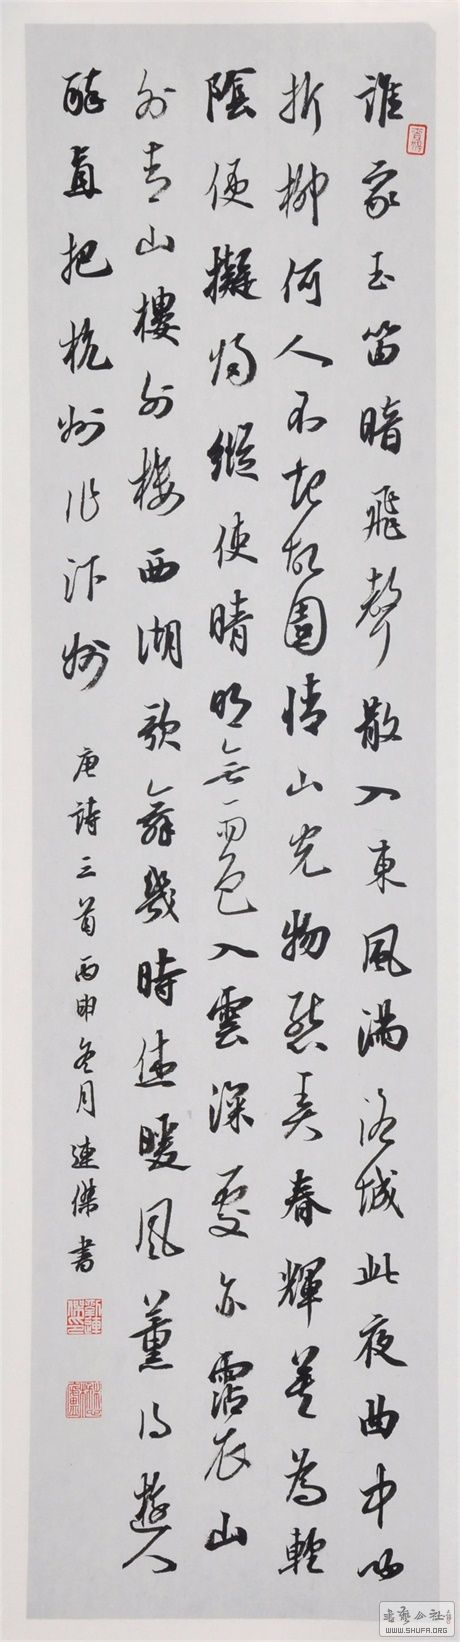 誰家玉笛暗飛聲散入東風滿洛城此夜曲中聞
折柳何人不起故園情山光物態弄春輝莫為輕
陰便擬歸縱使晴明無雨色入雲深處亦霑衣山
外青山樓外樓西湖歌舞幾時休暖風薰得遊人
醉直把杭州作汴州 唐詩三首丙申冬月連傑書
书艺公社
WWW.SHUFA.ORG